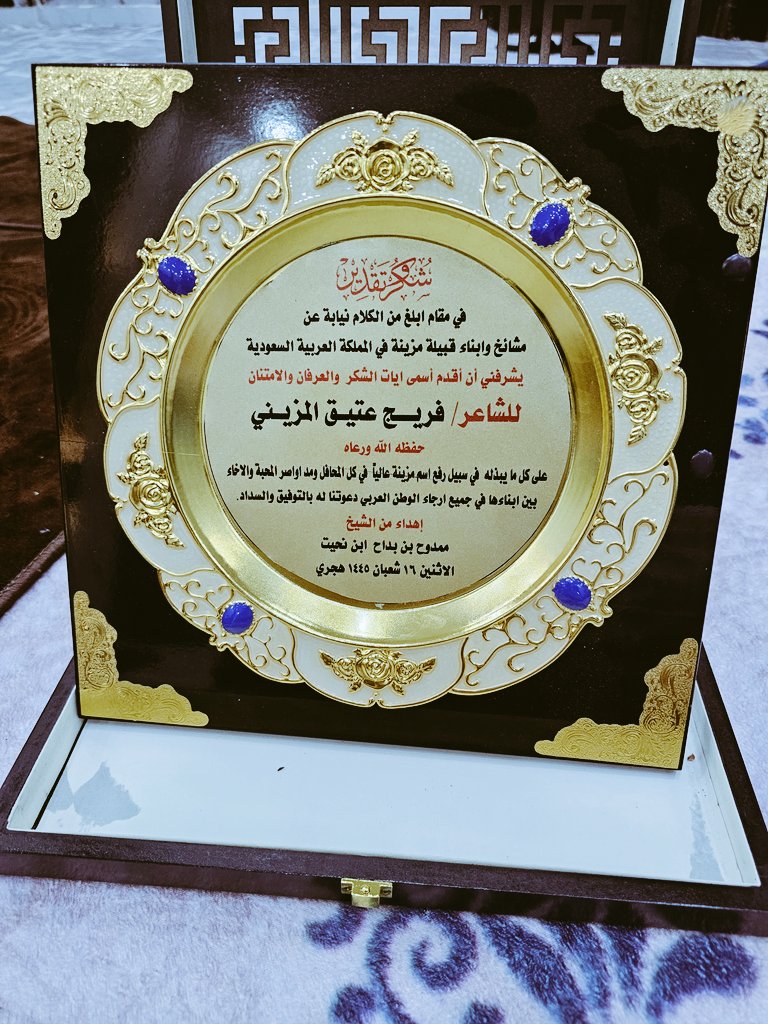 شكر وتقدير
في مقام ابلغ من الكلام نيابة عن
مشائخ وابناء قبيلة مزينة في المملكة العربية السعودية
يشرفني أن أقدم أسمى ايات الشكر والعرفان والامتنان
للشاعر/ فريج عتيق المزيني
حفظه الله ورعاه
على كل ما يبذله في سبيل رفع اسم مزينة عالياً في كل المحافل ومد اواصر المحبة والاخاء
بين ابناءها في جميع ارجاء الوطن العربي دعوتنا له بالتوفيق والسداد.
إهداء من الشيخ
ممدوح بن بداح ابن نحيت
الاثنين ١٦ شعبان ١٤٤٥ هجري